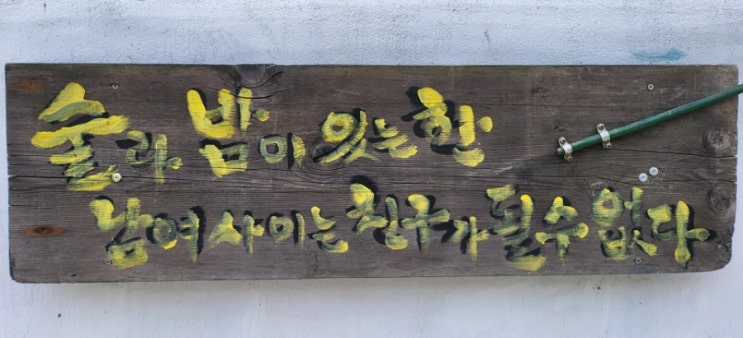 술과 밤이 있는 한
남여 사이는 친구가 될수 없다